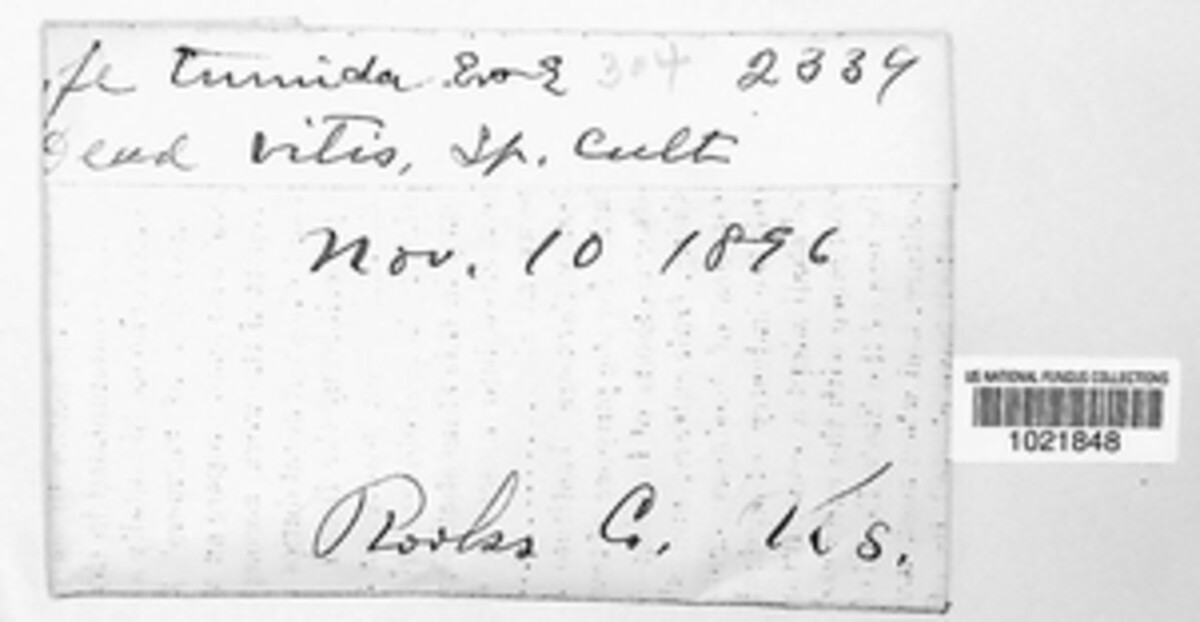 tumida E & E 304 2339
Dead Vitis, Sp. Cult
Nov. 10 1896
US NATIONAL FUNGUS COLLECTIONS
1021848
Rooks Co. Ks.